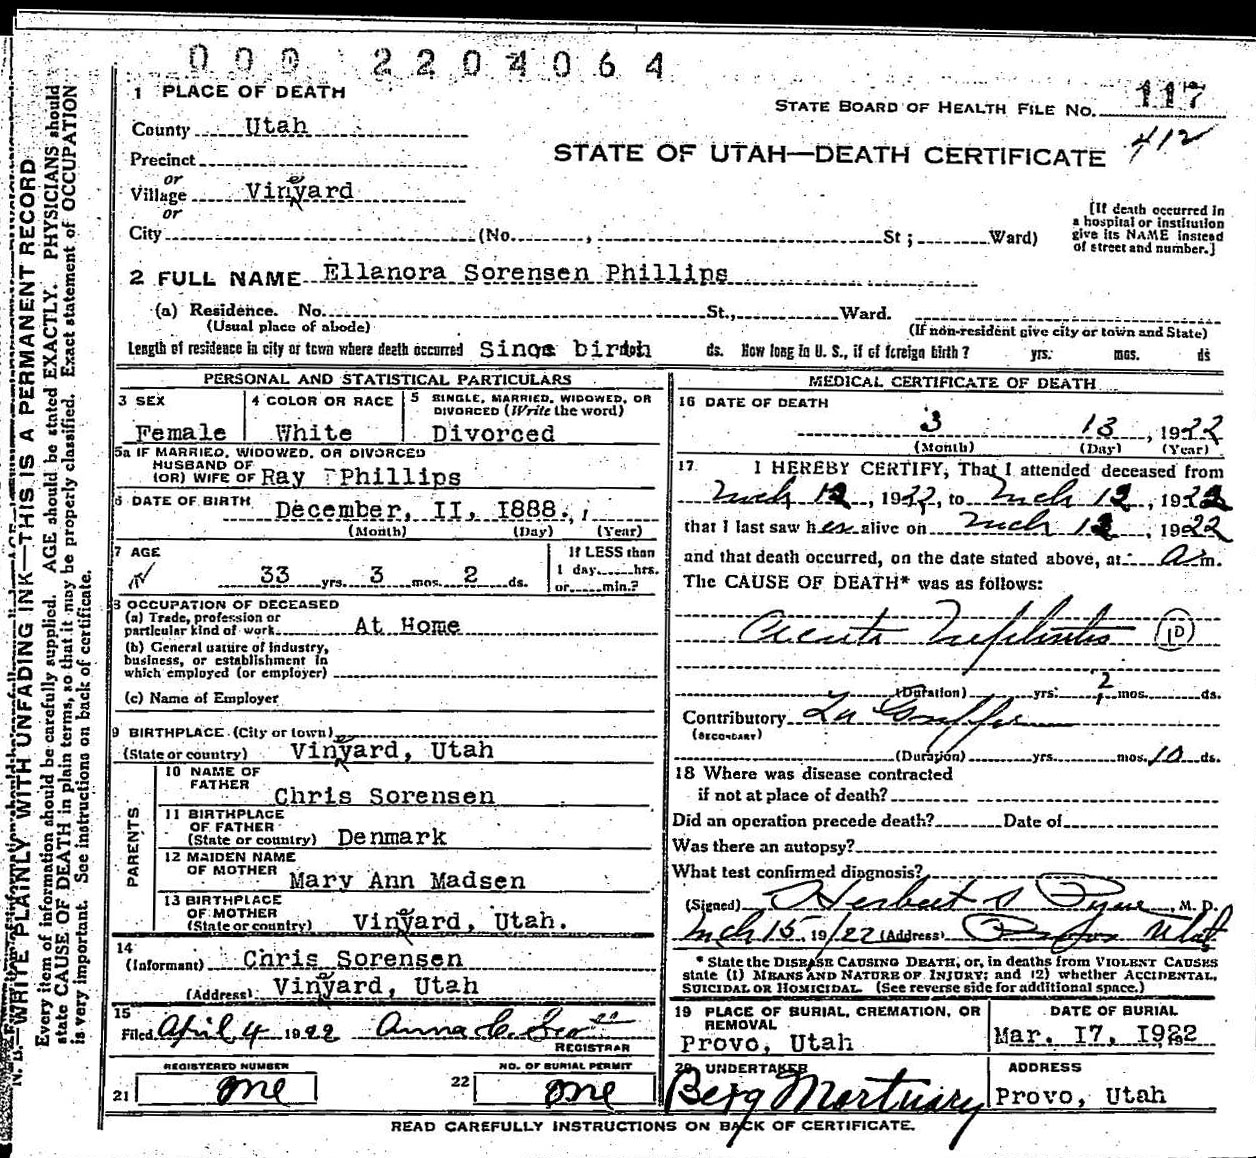 000 2204064
1 PLACE OF DEATH
STATE BOARD OF HEALTH FILE NO. 117
412
County Utah
STATE OF UTAH—DEATH CERTIFICATE
Precinct
or
Village Vinyard
e
or
[If death occurred in a hospital or institution give its NAME instead of street and number.]
City (No. , St ; Ward)
2 FULL NAME Ellanora Sorensen Phillips
(a) Residence. No. St., Ward.
(Usual place of abode) (If non-resident give city or town and State)
Length of residence in city or town where death occurred Since birth ds. How long in U. S., if of foreign birth? yrs. mos. ds
PERSONAL AND STATISTICAL PARTICULARS
3 SEX 4 COLOR OR RACE 5 SINGLE, MARRIED, WIDOWED, OR DIVORCED (Write the word)
Female White Divorced
5a IF MARRIED, WIDOWED, OR DIVORCED
HUSBAND OF
(OR) WIFE OF Ray Phillips
6 DATE OF BIRTH December, II, I888.
(Month) (Day) (Year)
7 AGE If LESS than
33 yrs. 3 mos. 2 ds. 1 day, hrs.
or min.?
8 OCCUPATION OF DECEASED
(a) Trade, profession or
particular kind of work At Home
(b) General nature of industry,
business, or establishment in
which employed (or employer)
(c) Name of Employer
9 BIRTHPLACE (City or town)
(State or country) Vinyard, Utah
e
PARENTS
10 NAME OF
FATHER
Chris Sorensen
11 BIRTHPLACE
OF FATHER
(State or country) Denmark
12 MAIDEN NAME
OF MOTHER
Mary Ann Madsen
13 BIRTHPLACE
OF MOTHER
(State or country) Vinyard, Utah.
e
14
(Informant) Chris Sorensen
(Address) Vinyard, Utah
e
15
Filed April 4 1922 Anna C.
REGISTRAR
REGISTERED NUMBER NO. OF BURIAL PERMIT
21 one 22 one
MEDICAL CERTIFICATE OF DEATH
16 DATE OF DEATH
3 13, 1922
(Month) (Day) (Year)
17. I HEREBY CERTIFY, That I attended deceased from
Mch 12, 1922, to Mch 12, 1922
that I last saw her alive on Mch 12, 1922
and that death occurred, on the date stated above, at a m.
The CAUSE OF DEATH* was as follows:
Acute Nephritis 1D
(Duration) yrs. 2 mos. ds.
Contributory La Grippe
(SECONDARY)
(Duration) yrs. mos. 10 ds.
18 Where was disease contracted
if not at place of death?
Did an operation precede death? Date of
Was there an autopsy?
What test confirmed diagnosis?
(Signed) Herbert S Pyne, M. D.
Mch 15, 19/22 (Address) Provo Utah
* State the DISEASE CAUSING DEATH, or, in deaths from VIOLENT CAUSES
state (1) MEANS AND NATURE OF INJURY; and (2) whether ACCIDENTAL,
SUICIDAL OR HOMICIDAL. (See reverse side for additional space.)
19 PLACE OF BURIAL, CREMATION, OR REMOVAL DATE OF BURIAL
Provo, Utah Mar. I7, I922
20 UNDERTAKER ADDRESS
Berg Mortuary Provo, Utah
READ CAREFULLY INSTRUCTIONS ON BACK OF CERTIFICATE.
N. B.—WRITE PLAINLY WITH UNFADING INK—THIS IS A PERMANENT RECORD
Every item of information should be carefully supplied. AGE should be stated EXACTLY. PHYSICIANS should
state CAUSE OF DEATH in plain terms, so that it may be properly classified. Exact statement of OCCUPATION
is very important. See instructions on back of certificate.